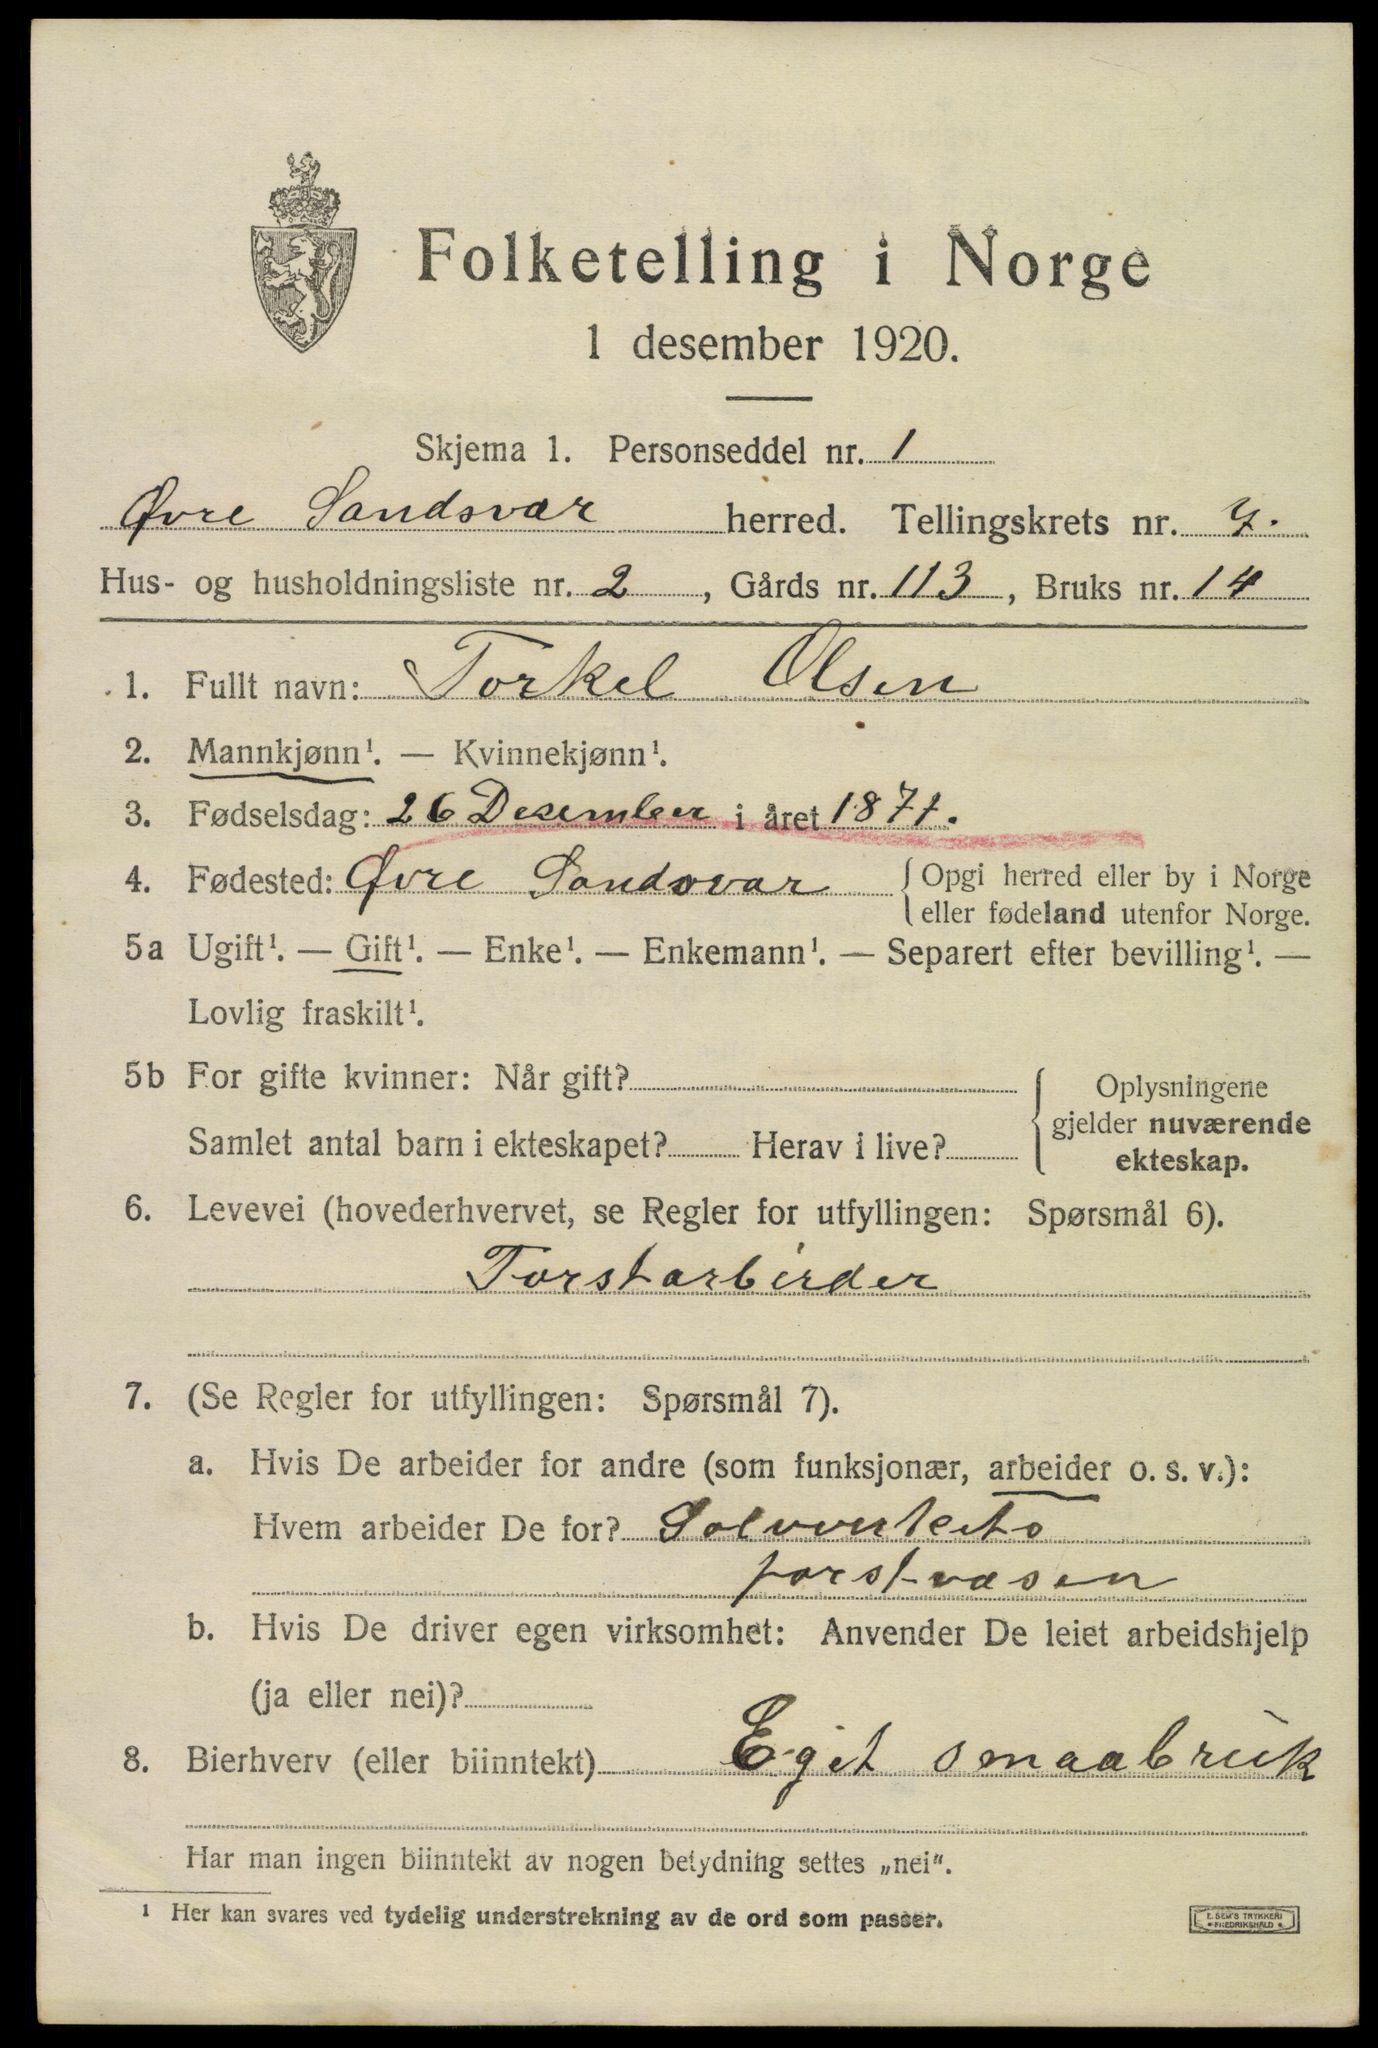 Folketelling i Norge
1 desember 1920.
Skjema 1. Personseddel nr. 1
Øvre Sandsvær herred. Tellingskrets nr. 7.
Hus- og husholdningsliste nr. 2, Gårds nr. 113, Bruks nr. 14
1. Fullt navn: Torkel Olsen
2. Mannkjønn¹. — Kvinnekjønn¹.
3. Fødselsdag: 26 Desember i året 1871.
4. Fødested: Øvre Sandsvær { Opgi herred eller by i Norge
eller fødeland utenfor Norge.
5a Ugift¹. — Gift¹. — Enke¹. — Enkemann¹. — Separert efter bevilling¹. —
Lovlig fraskilt¹.
5b For gifte kvinner: Når gift? { Oplysningene
gjelder nuværende
Samlet antal barn i ekteskapet? Herav i live?
ekteskap.
6. Levevei (hovederhvervet, se Regler for utfyllingen: Spørsmål 6).
Forstarbeider
7. (Se Regler for utfyllingen: Spørsmål 7).
a. Hvis De arbeider for andre (som funksjonær, arbeider o. s. v.):
Hvem arbeider De for? Sølvverkets
forstvæsen
b. Hvis De driver egen virksomhet: Anvender De leiet arbeidshjelp
(ja eller nei)?
8. Bierhverv (eller biinntekt) Eget smaabruk
Har man ingen biinntekt av nogen betydning settes „nei“.
¹ Her kan svares ved tydelig understrekning av de ord som passer.
E. SEM'S TRYKKERI
FREDRIKSHALD